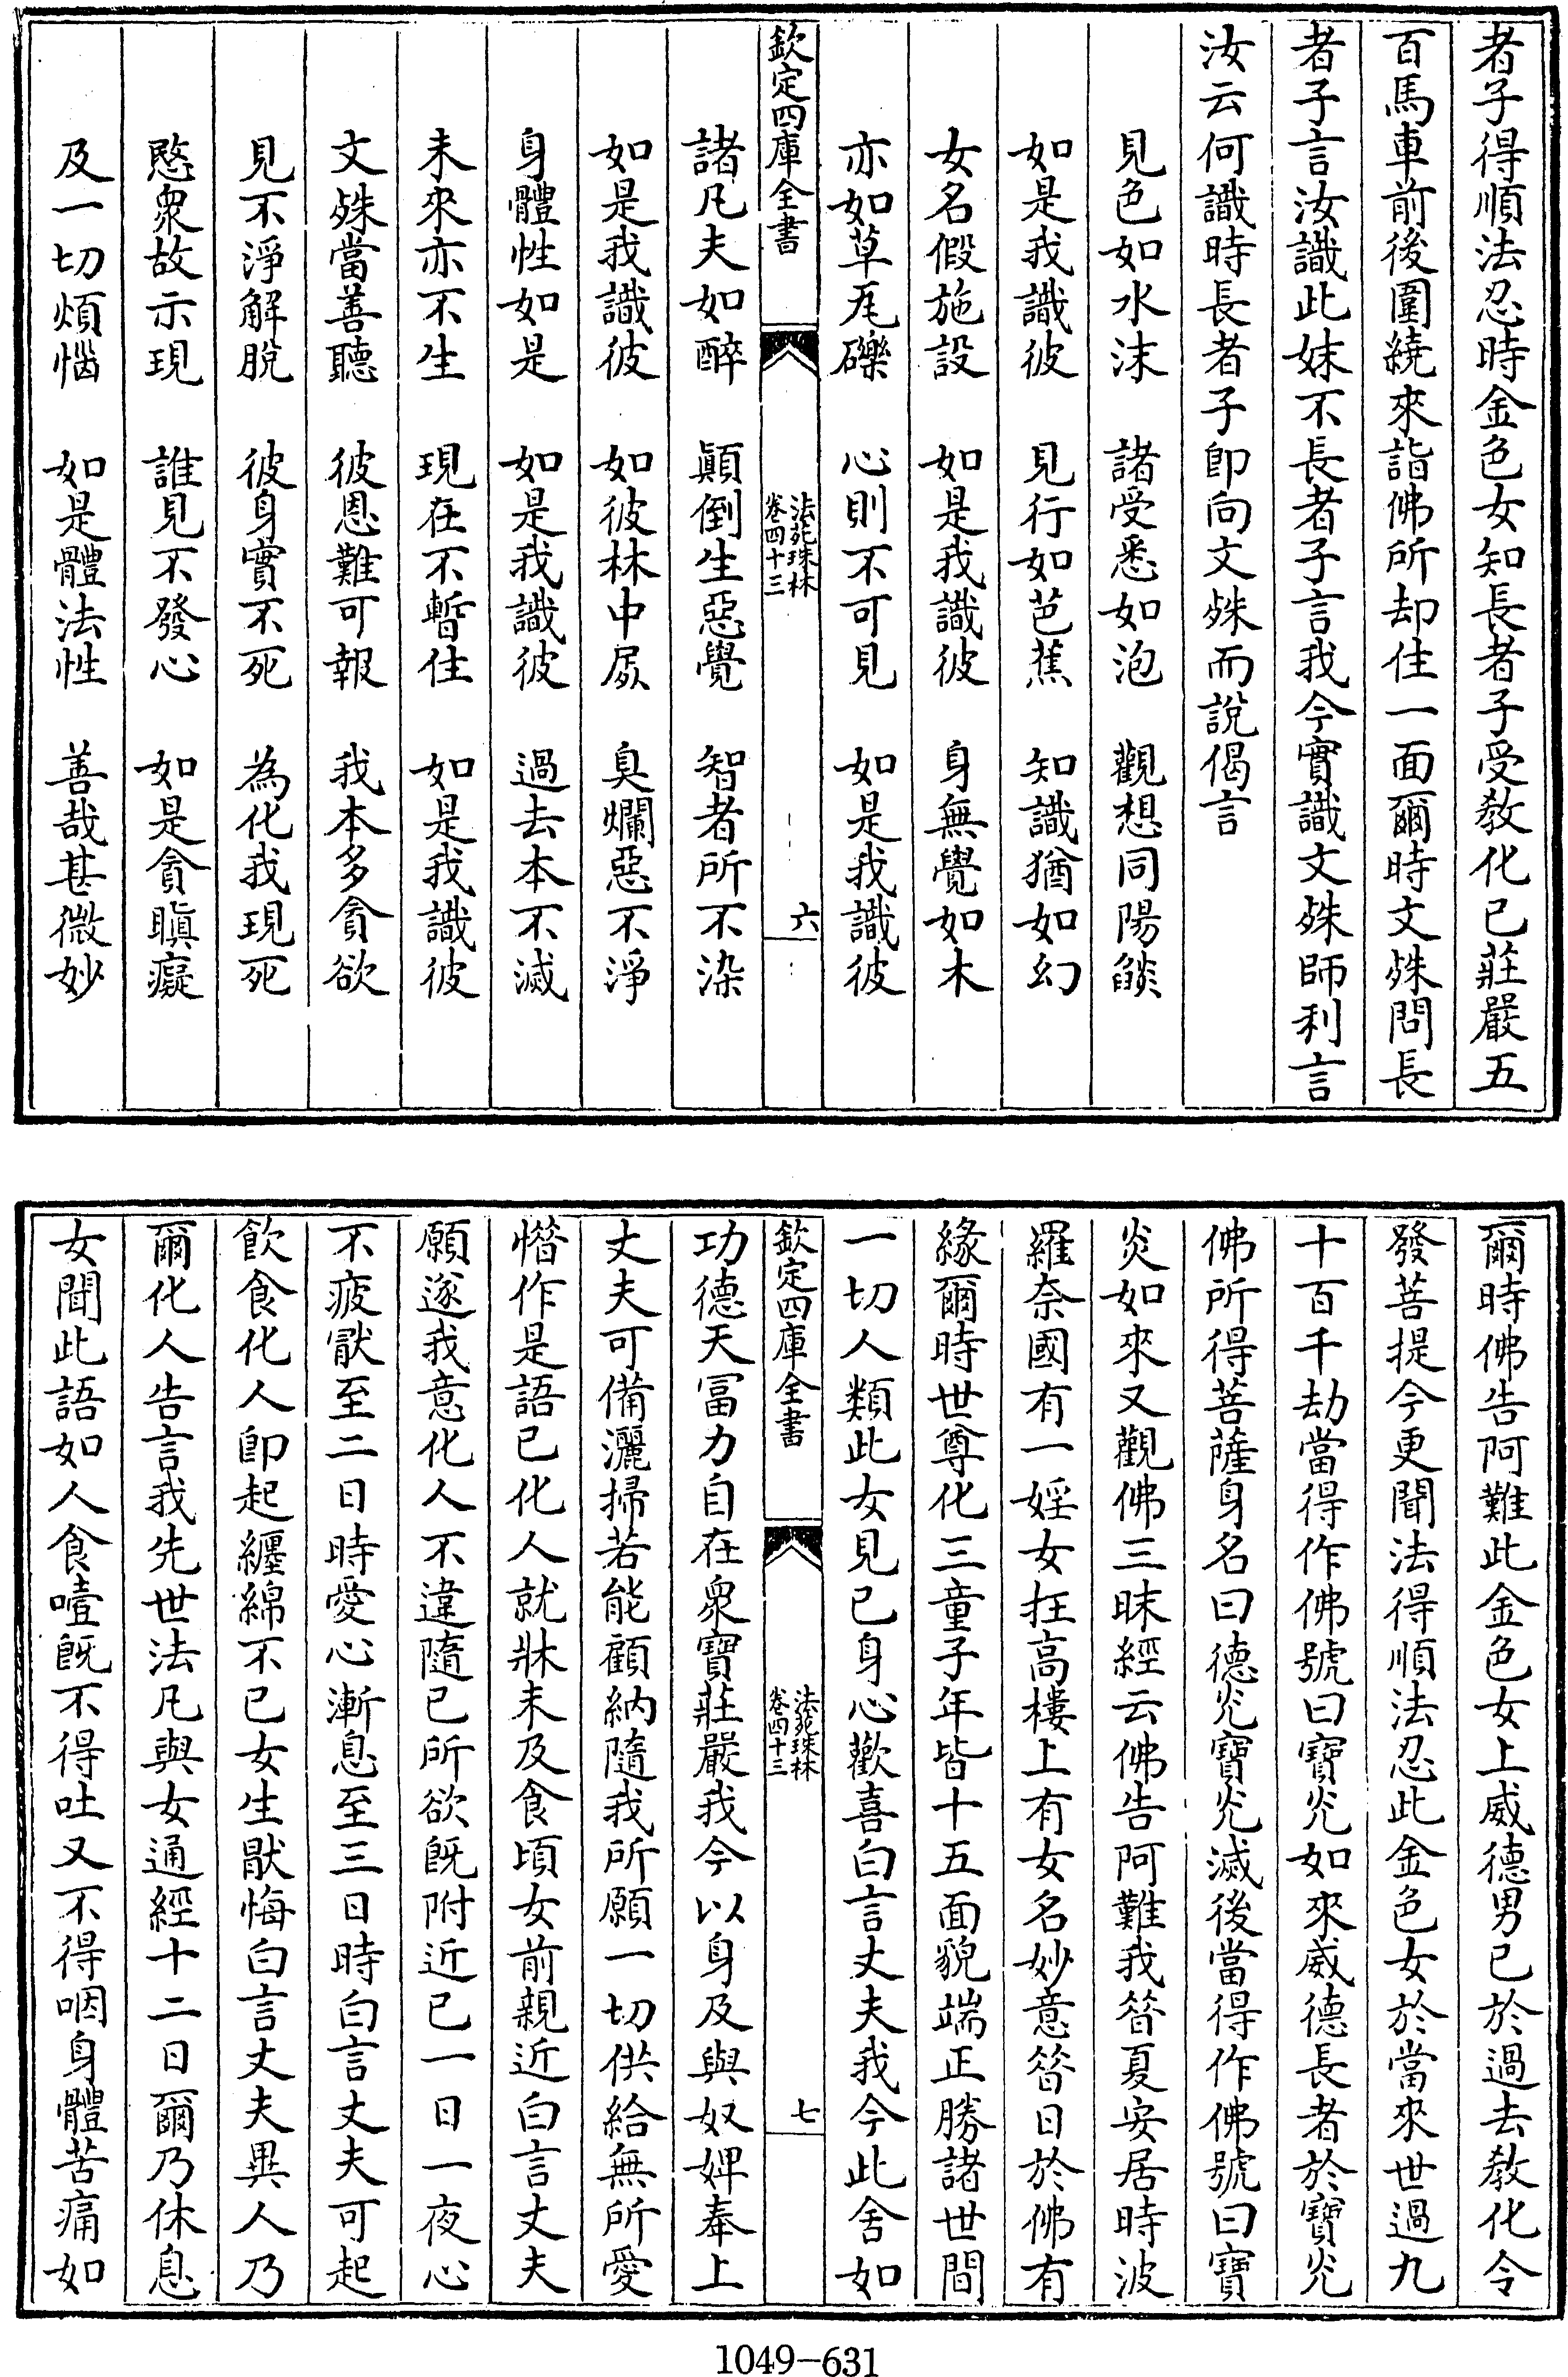 者子得順法忍時金色女知長者子受教化已莊嚴五
百馬車前後圍繞來詣佛所却住一面爾時文殊問長
者子言汝識此妹不長者子言我今實識文殊師利言
汝云何識時長者子卽向文殊而說偈言
見色如水沫　諸受悉如泡　觀想同陽燄
如是我識彼　見行如芭蕉　知識猶如幻
女名假施設　如是我識彼　身無覺如木
亦如草瓦礫　心則不可見　如是我識彼
欽定四庫全書
法苑珠林
卷四十三
六
諸凡夫如醉　顚倒生惡覺　智者所不染
如是我識彼　如彼林中屍　臭爛惡不淨
身體性如是　如是我識彼　過去本不滅
未來亦不生　現在不暫住　如是我識彼
文殊當善聽　彼恩難可報　我本多貪欲
見不淨解脫　彼身實不死　為化我現死
愍衆故示現　誰見不發心　如是貪瞋癡
及一切煩惱　如是體法性　善哉甚微妙
爾時佛告阿難此金色女上威德男已於過去教化令
發菩提今更聞法得順法忍此金色女於當來世過九
十百千劫當得作佛號曰寶光如來威德長者於寶光
佛所得菩薩身名曰德光寶光滅後當得作佛號曰寶
炎如來又觀佛三昧經云佛告阿難我昝夏安居時波
羅奈國有一婬女在高樓上有女名妙意昝日於佛有
緣爾時世尊化三童子年皆十五面貌端正勝諸世間
一切人類此女見已身心歡喜白言丈夫我今此舍如
欽定四庫全書
法苑珠林
卷四十三
七
功德天冨力自在衆寶莊嚴我今以身及與奴婢奉上
丈夫可備灑掃若能顧納隨我所願一切供給無所愛
憯作是語已化人就牀未及食頃女前親近白言丈夫
願遂我意化人不違隨已所欲旣附近已一日一夜心
不疲猒至二日時愛心漸息至三日時白言丈夫可起
飮食化人卽起纏綿不已女生猒悔白言丈夫異人乃
爾化人告言我先世法凡與女通經十二日爾乃休息
女聞此語如人食噎旣不得吐又不得咽身體苦痛如
1049-631